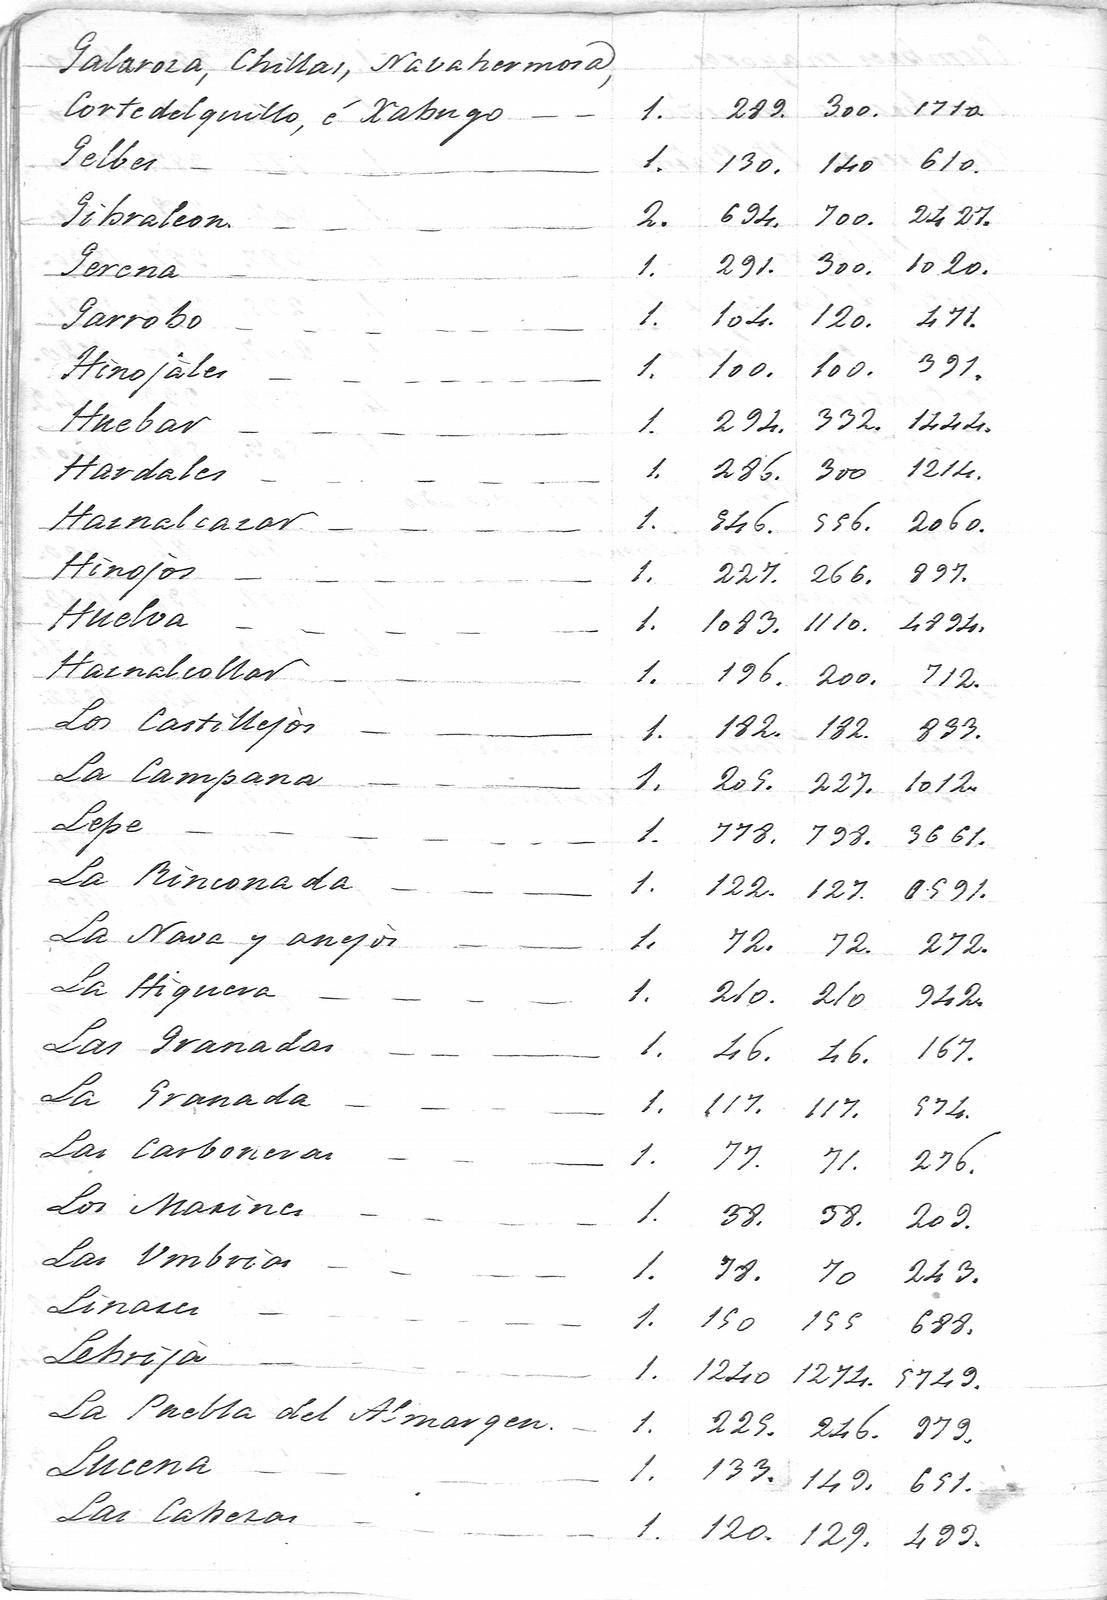 Galaroza, Chillas, Navahermosa,
Cortedelquillo, é Xabugo — — 1. 289. 300. 1710.
Gelbes — — 1. 130. 140 610.
Gibraleon. — — — — 2. 694. 700. 2427.
Gerena — — 1. 291. 300. 1020.
Garrobo — — — — — — 1. 104. 120. 471.
Hinojàles — — — — — — 1. 100. 100. 391.
Huebar — — — — — — 1. 294. 332. 1444.
Hardales — — — — — — 1. 286. 300 1214.
Haznalcazar — — — — — 1. 546. 556. 2060.
Hinojòs — — — — — — 1. 227. 266. 897.
Huelva — — — — — — 1. 1083. 1110. 4894.
Haznalcollar — — — 1. 196. 200. 712.
Los Castillejòs — — 1. 182. 182. 833.
La Campana — — — — 1. 205. 227. 1012.
Lepe — — — — — — 1. 778. 798. 3661.
La Rinconada — — — 1. 122. 127. 0591.
La Nava y anejòs — — 1. 72. 72. 272.
La Higuera — — — — — 1. 210. 210 942.
Las Granadas — — — 1. 46. 46. 167.
La Granada — — — — 1. 117. 117. 574.
Las Carboneras — — — — 1. 77. 71. 276.
Los Marines — — — — — 1. 58. 58. 209.
Las Umbrias — — — — 1. 78. 70 243.
Linares — — — — — 1. 150 155 688.
Lebrijà — — — — 1. 1240 1274. 5749.
La Puebla del Almargen. — 1. 225. 246. 979.
Lucena — — — 1. 133. 149. 651.
Las Cabezas — — — 1. 120. 129. 499.